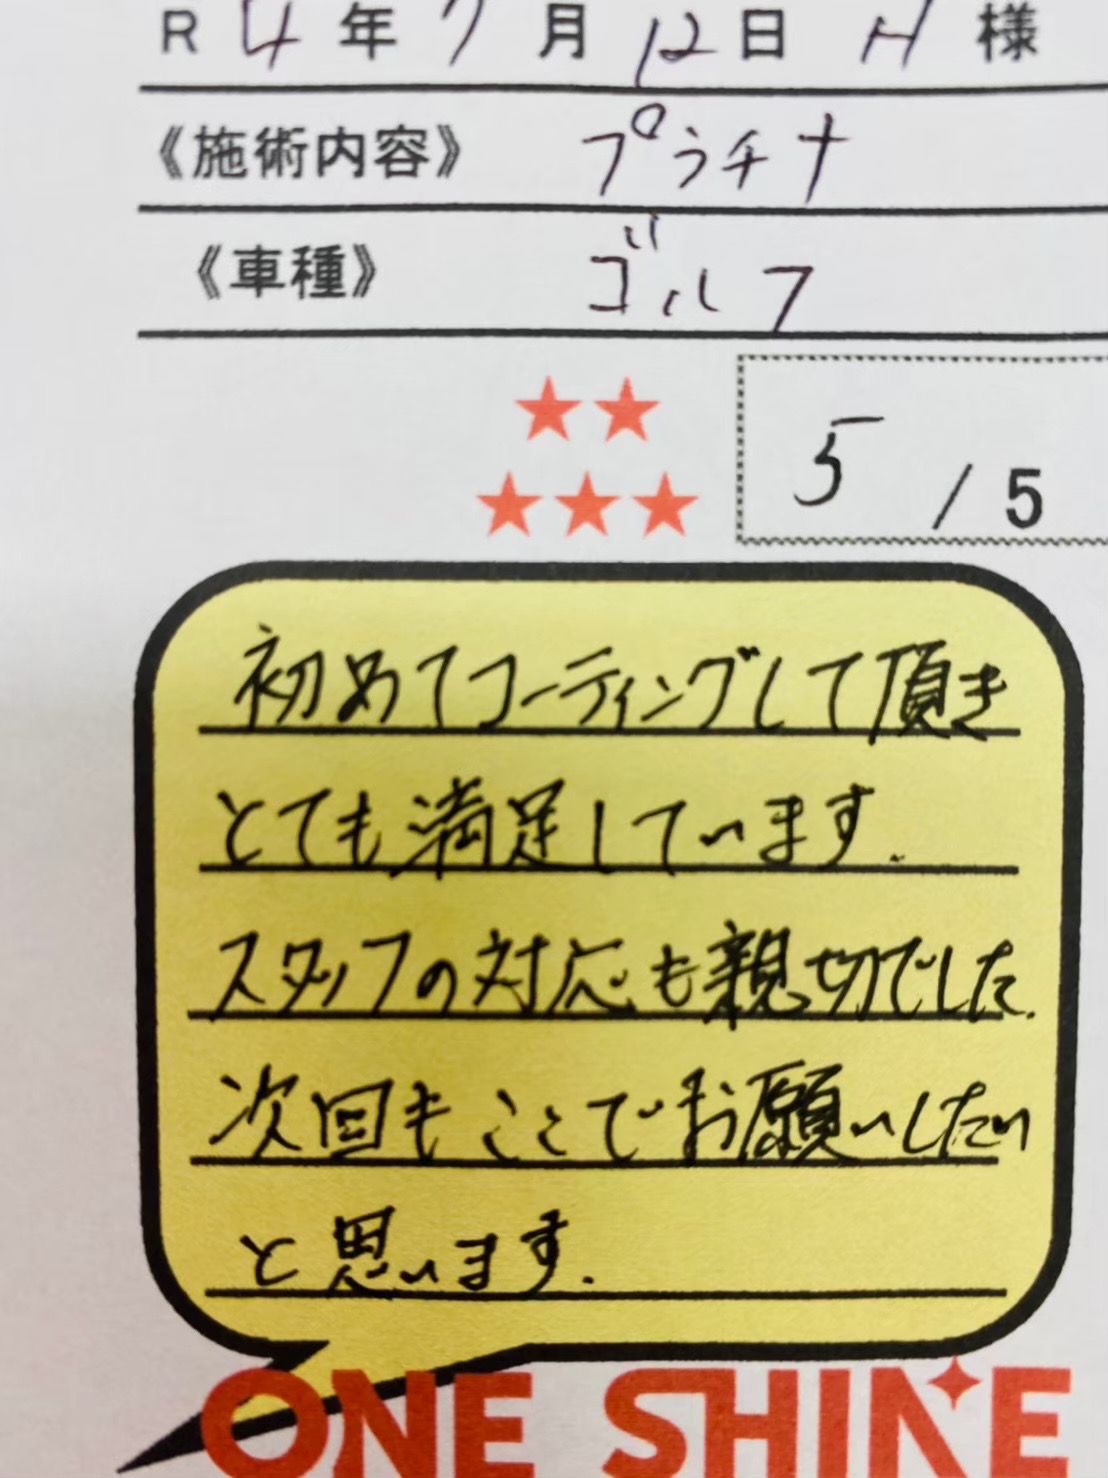 R 4年 7月 12日 H 様
《施術内容》 プラチナ
《車種》 ゴルフ
5 / 5
初めてコーティングして頂き
とても満足しています.
スタッフの対応も親切でした.
次回もここでお願いしたい
と思います.
ONE SHINE